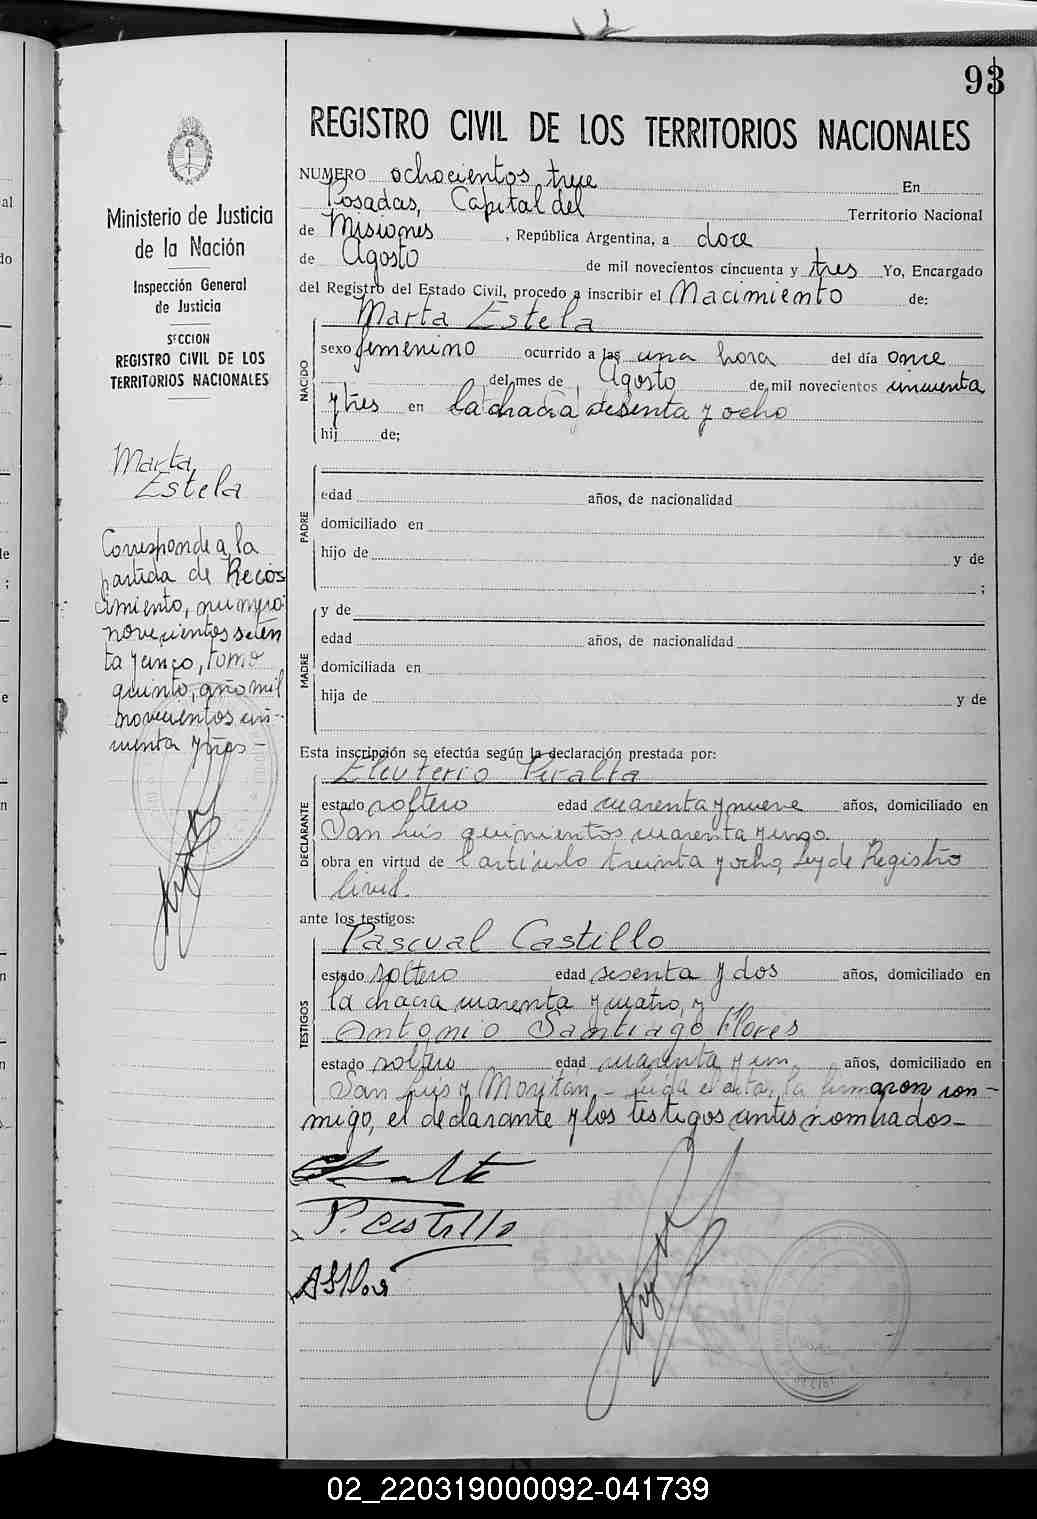 93
REGISTRO CIVIL DE LOS TERRITORIOS NACIONALES
NUMERO ochocientos trece En
Posadas, Capital del Territorio Nacional
de Misiones, República Argentina, a doce
de Agosto de mil novecientos cincuenta y tres Yo, Encargado
del Registro del Estado Civil, procedo a inscribir el Nacimiento de:
Marta Estela
NACIDO
sexo femenino ocurrido a las una hora del día once
del mes de Agosto de mil novecientos cincuenta
y tres en la chacra sesenta y ocho
hij de;
PADRE
edad años, de nacionalidad
domiciliado en
hijo de y de
;
MADRE
y de
edad años, de nacionalidad
domiciliada en
hija de y de
Esta inscripción se efectúa según la declaración prestada por:
Eleuterio Peralta
DECLARANTE
estado soltero edad cuarenta y nueve años, domiciliado en
San Luis quinientos cuarenta y cinco
obra en virtud de l'artículo treinta y ocho, Ley de Registro
Civil.
ante los testigos:
Pascual Castillo
TESTIGOS
estado soltero edad sesenta y dos años, domiciliado en
la chacra cuarenta y cuatro, y
Antonio Santiago Flores
estado soltero edad cuarenta y un años, domiciliado en
San Luis y Moritán - Leída el acta, la firmaron con-
migo, el declarante y los testigos antes nombrados-
P. Castillo
Ministerio de Justicia
de la Nación
Inspección General
de Justicia
SECCION
REGISTRO CIVIL DE LOS
TERRITORIOS NACIONALES
Marta
Estela
Corresponde a la
partida de Recos
imiento, numero
novecientos seten
ta y cinco, tomo
quinto, año mil
novecientos cin-
cuenta y tres-
02_220319000092-041739